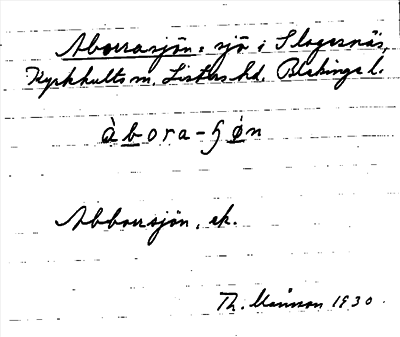 Aborrasjön: sjö i Slagesnäs,
Kyrkhults sn, Listers hd. Blekinge l.
àbora-ɧøn
Abborrsjön, ek.
Th. Månsson 1930.